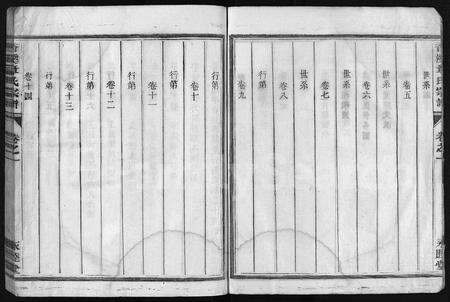 世系
卷五
世系
卷六
世系
卷七
世系
卷八
行第
卷九
行第
卷十
行第
卷十一
行第
卷十二
行第
卷十三
行第
卷十四
卷之一